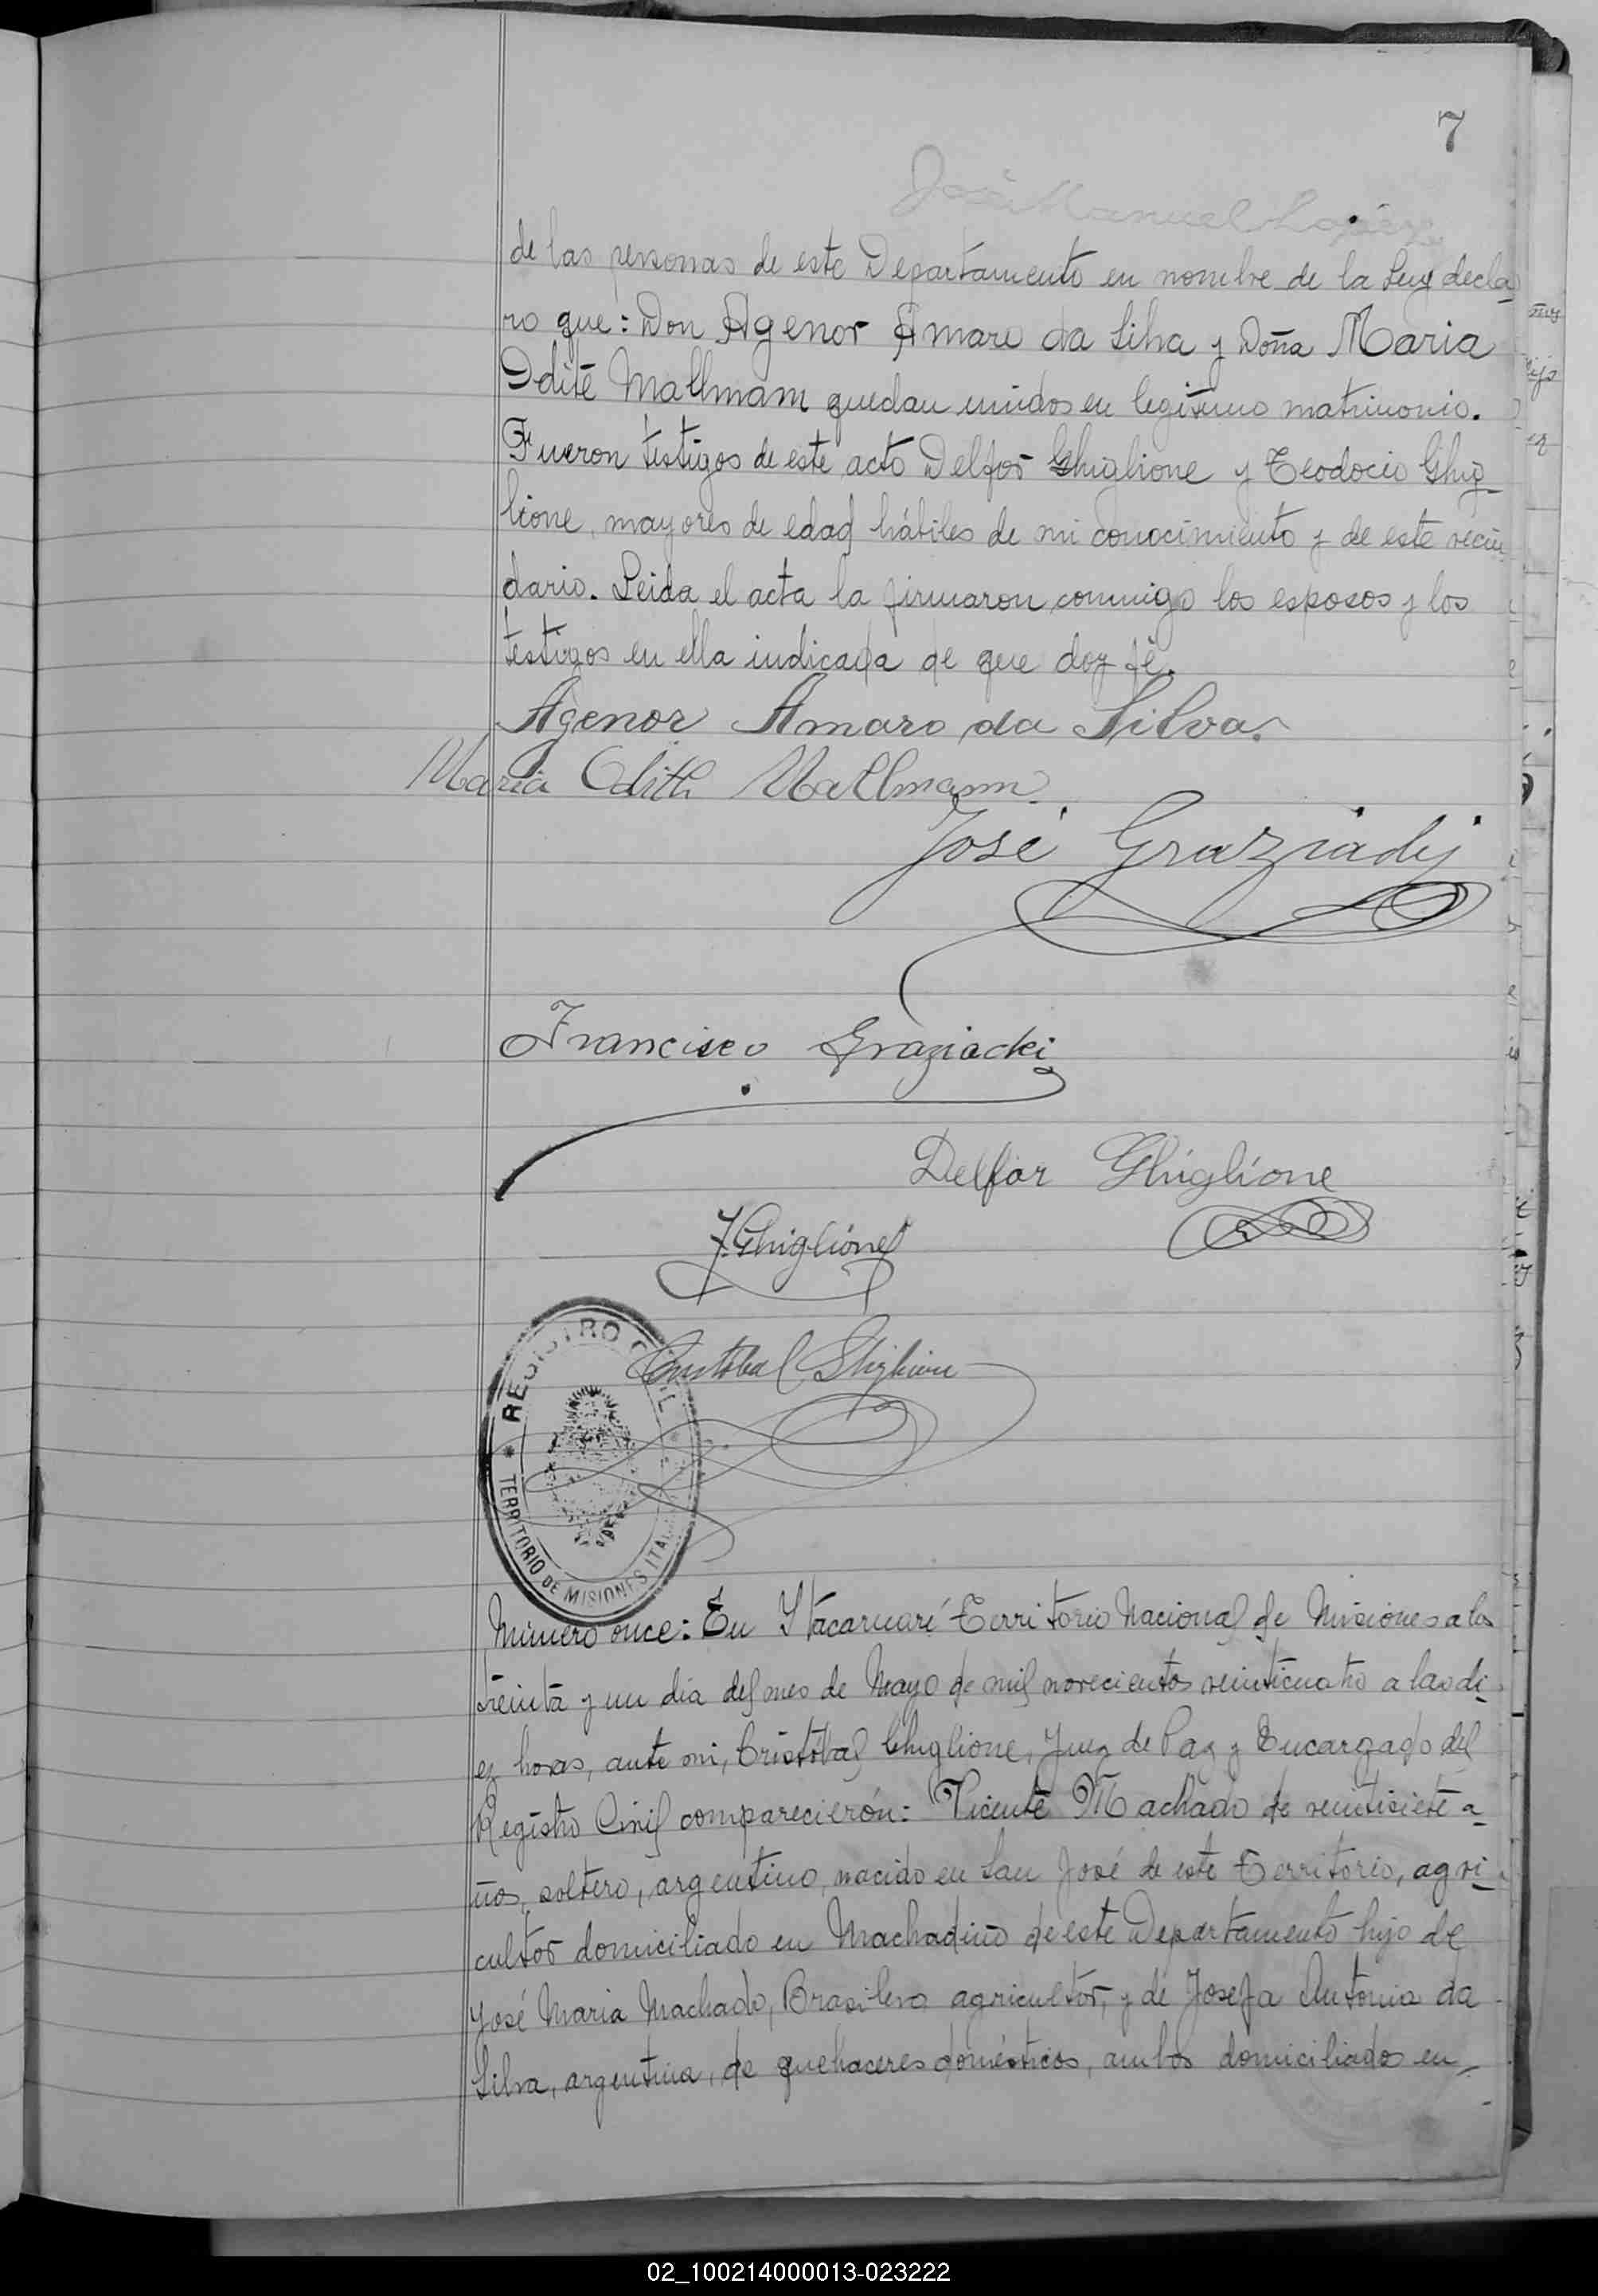 7
José Manuel Lopez
de las personas de este Departamento en nombre de la Ley decla
ro que: Don Agenor Amaro da Silva y Doña Maria
Odite Mallmam quedan unidos en legitimo matrimonio.
Fueron testigos de este acto Delfor Ghiglione y Teodocio Ghig
lione, mayores de edad hábiles de mi conocimiento y de este vecin
dario. Leida el acta la firmaron conmigo los esposos y los
testigos en ella indicada de que doy fé.
Agenor Amaro da Silva.
Maria Odith Mallmann.
José Graziadij
Francisco Graziadei
Delfor Ghiglione
T. Ghiglione
Cristobal Ghiglione
REGISTRO CIVIL
TERRITORIO DE MISIONES ITA
Número once: En Ytacaruaré Territorio Nacional de Misiones a los
treinta y un dia del mes de Mayo de mil novecientos veinticuatro a las di
ez horas, ante mi, Cristóbal Ghiglione, Juez de Paz y Encargado del
Registro Civil comparecierón: Vicente Machado de veintisiete a
ños, soltero, argentino, nacido en San José de este Territorio, agri
cultor domiciliado en Machadiño de este Departamento hijo de
José Maria Machado, Brasilero agricultor, y de Josefa Antonia da
Silva, argentina, de quehaceres domésticos, ambos domiciliados en
02_100214000013-023222